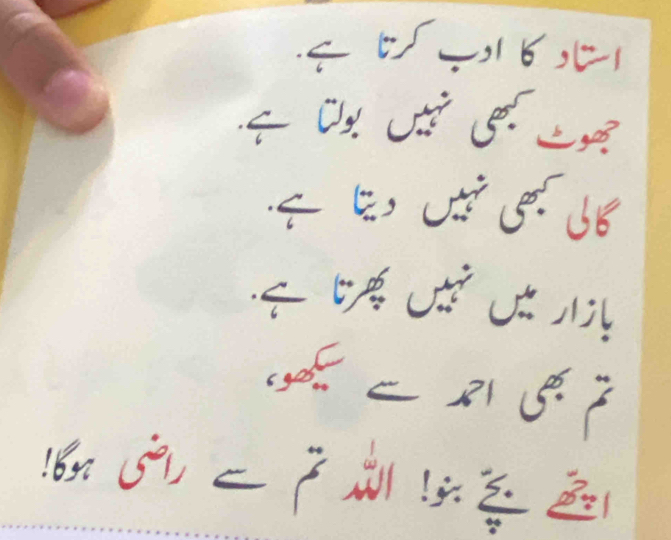 استاد کا ادب کرتا ہے.
جھوٹ کبھی نہیں بولتا ہے.
گالی کبھی نہیں دیتا ہے.
بازار میں نہیں پھرتا ہے.
تم بھی احمد سے سیکھو،
اچھّے بچّے بنو! اللہ تم سے راضی ہوگا!